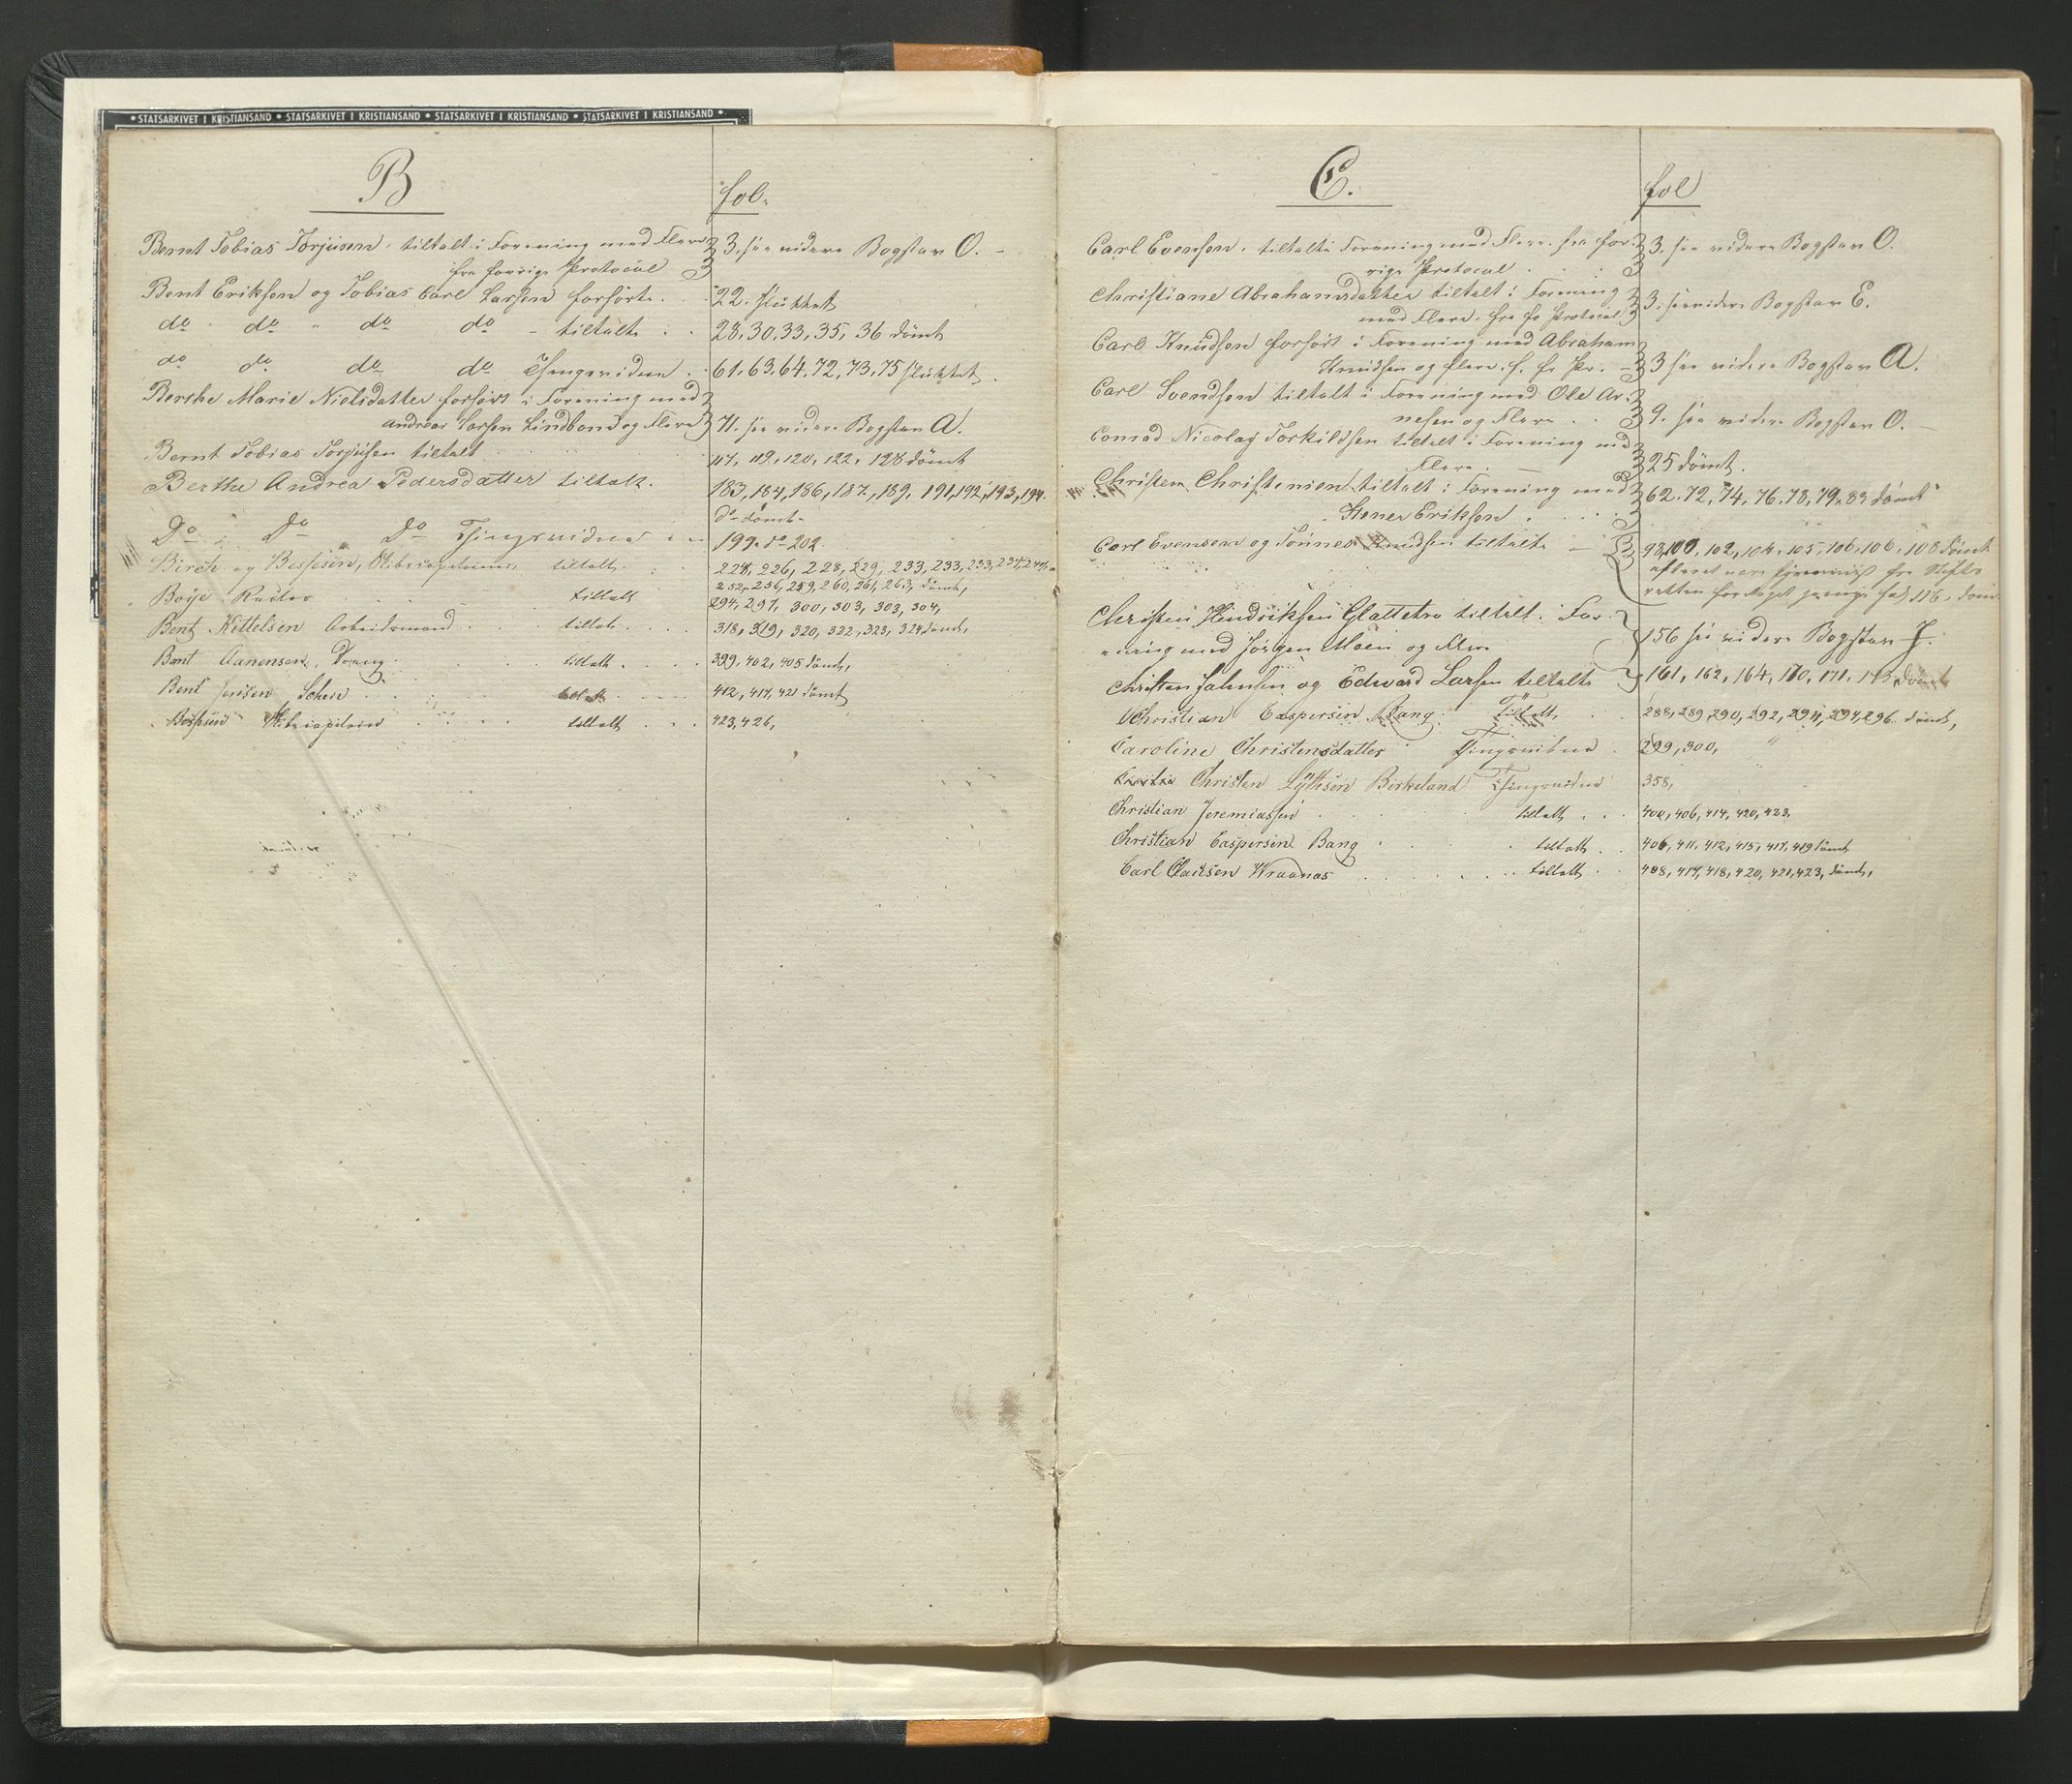 • STATSARKIVET I KRISTIANSAND • STATSARKIVET I KRISTIANSAND • STATSARKIVET I KRISTIANSAND • STATSARKIVET I KRISTIANSAND •
B
fol.
Bernt Tobias Torjusen, tiltalt i Forening med Flere 3. see videre Bogstav O. -
fra forrige Protocol
Bent Eriksen og Tobias Carl Larsen forhörte . . 22. sluttet
do do " do do - tiltalte . . 28, 30, 33, 35, 36 dömt
do do do do Thingsvidne . . 61. 63. 64. 72, 73. 75 sluttet.
Berthe Marie Nielsdatter forhört i Forening med
Andreas Larsen Lindland og Flere 71. see videre Bogstav A.
Bernt Tobias Torjusen tiltalt 117, 119, 120, 122, 128 dömt
Berthe Andrea Pedersdatter tiltalt. 183, 184, 186, 187, 189, 191, 192, 193, 194.
do dömt.
Do Do Do Thingsvidne . . 199. do 202.
Birch og tiltalt 224, 226, 228, 229, 233, 233, 233, 234, 244,
252, 256, 259, 260, 261, 263, dömt,
Boije tiltalt 294, 297, 300, 303, 303, 304,
Bent Kittelsen Arbeidsmand . . tiltalt . . 318, 319, 320, 322, 323, 324 dömt,
Bent Aanensen, Vrang . . tiltalt . . 399, 402, 405 dömt,
Bent Jensen . . tiltalt . . 412, 417, 421 dömt
tiltalt . . 423, 426,
C.
fol
Carl Evensen, tiltalt i Forening med Flere. fra for- 3. see videre Bogstav O.
rige Protocol . . .
Christiane Abrahamsdatter tiltalt i Forening 3. see videre Bogstav E.
med Flere. fra fo Protocol
Carl Knudsen forhört i Forening med Abraham
Knudsen og flere. f. fr Pr. - 3 see videre Bogstav A.
Carl Svendsen tiltalt i Forening med Ole Ar-
nesen og Flere . . 9. see videre Bogstav O. -
Conrad Nicolay Torkildsen tiltalt i Forening med
Flere. - 25 dömt.
Christen Christensen tiltalt i Forening med 62. 72, 74, 76. 78, 79, 83 dömt
Stener Eriksen . . .
Carl Evensen og Tönnes Knudsen tiltalte - 98, 100, 102, 104, 105, 106, 106, 108 dömt
fra Stifts
retten 116, döm
Christen Hendriksen Glattetre tiltalt i For-
ening med Jörgen Moen og Flere 156 see videre Bogstav J.
Christen Johnsen og Edward Larsen tiltalte 161, 162, 164, 170, 171, 173 dömt
Christian Caspersen Bang tiltalt 288, 289, 290, 292, 294, 294, 296 dömt,
Caroline Christensdatter Thingsvidne . 299, 300,
Christen Birkeland Thingsvidne 358,
Christian Jeremiassen . . tiltalt . . 400, 406, 414, 420, 423,
Christian Caspersen Bang . . tiltalt . . 406, 411, 412, 415, 417, 419 dömt
Carl Clausen . . tiltalt . . 408, 417, 418, 420, 421, 423, dömt,